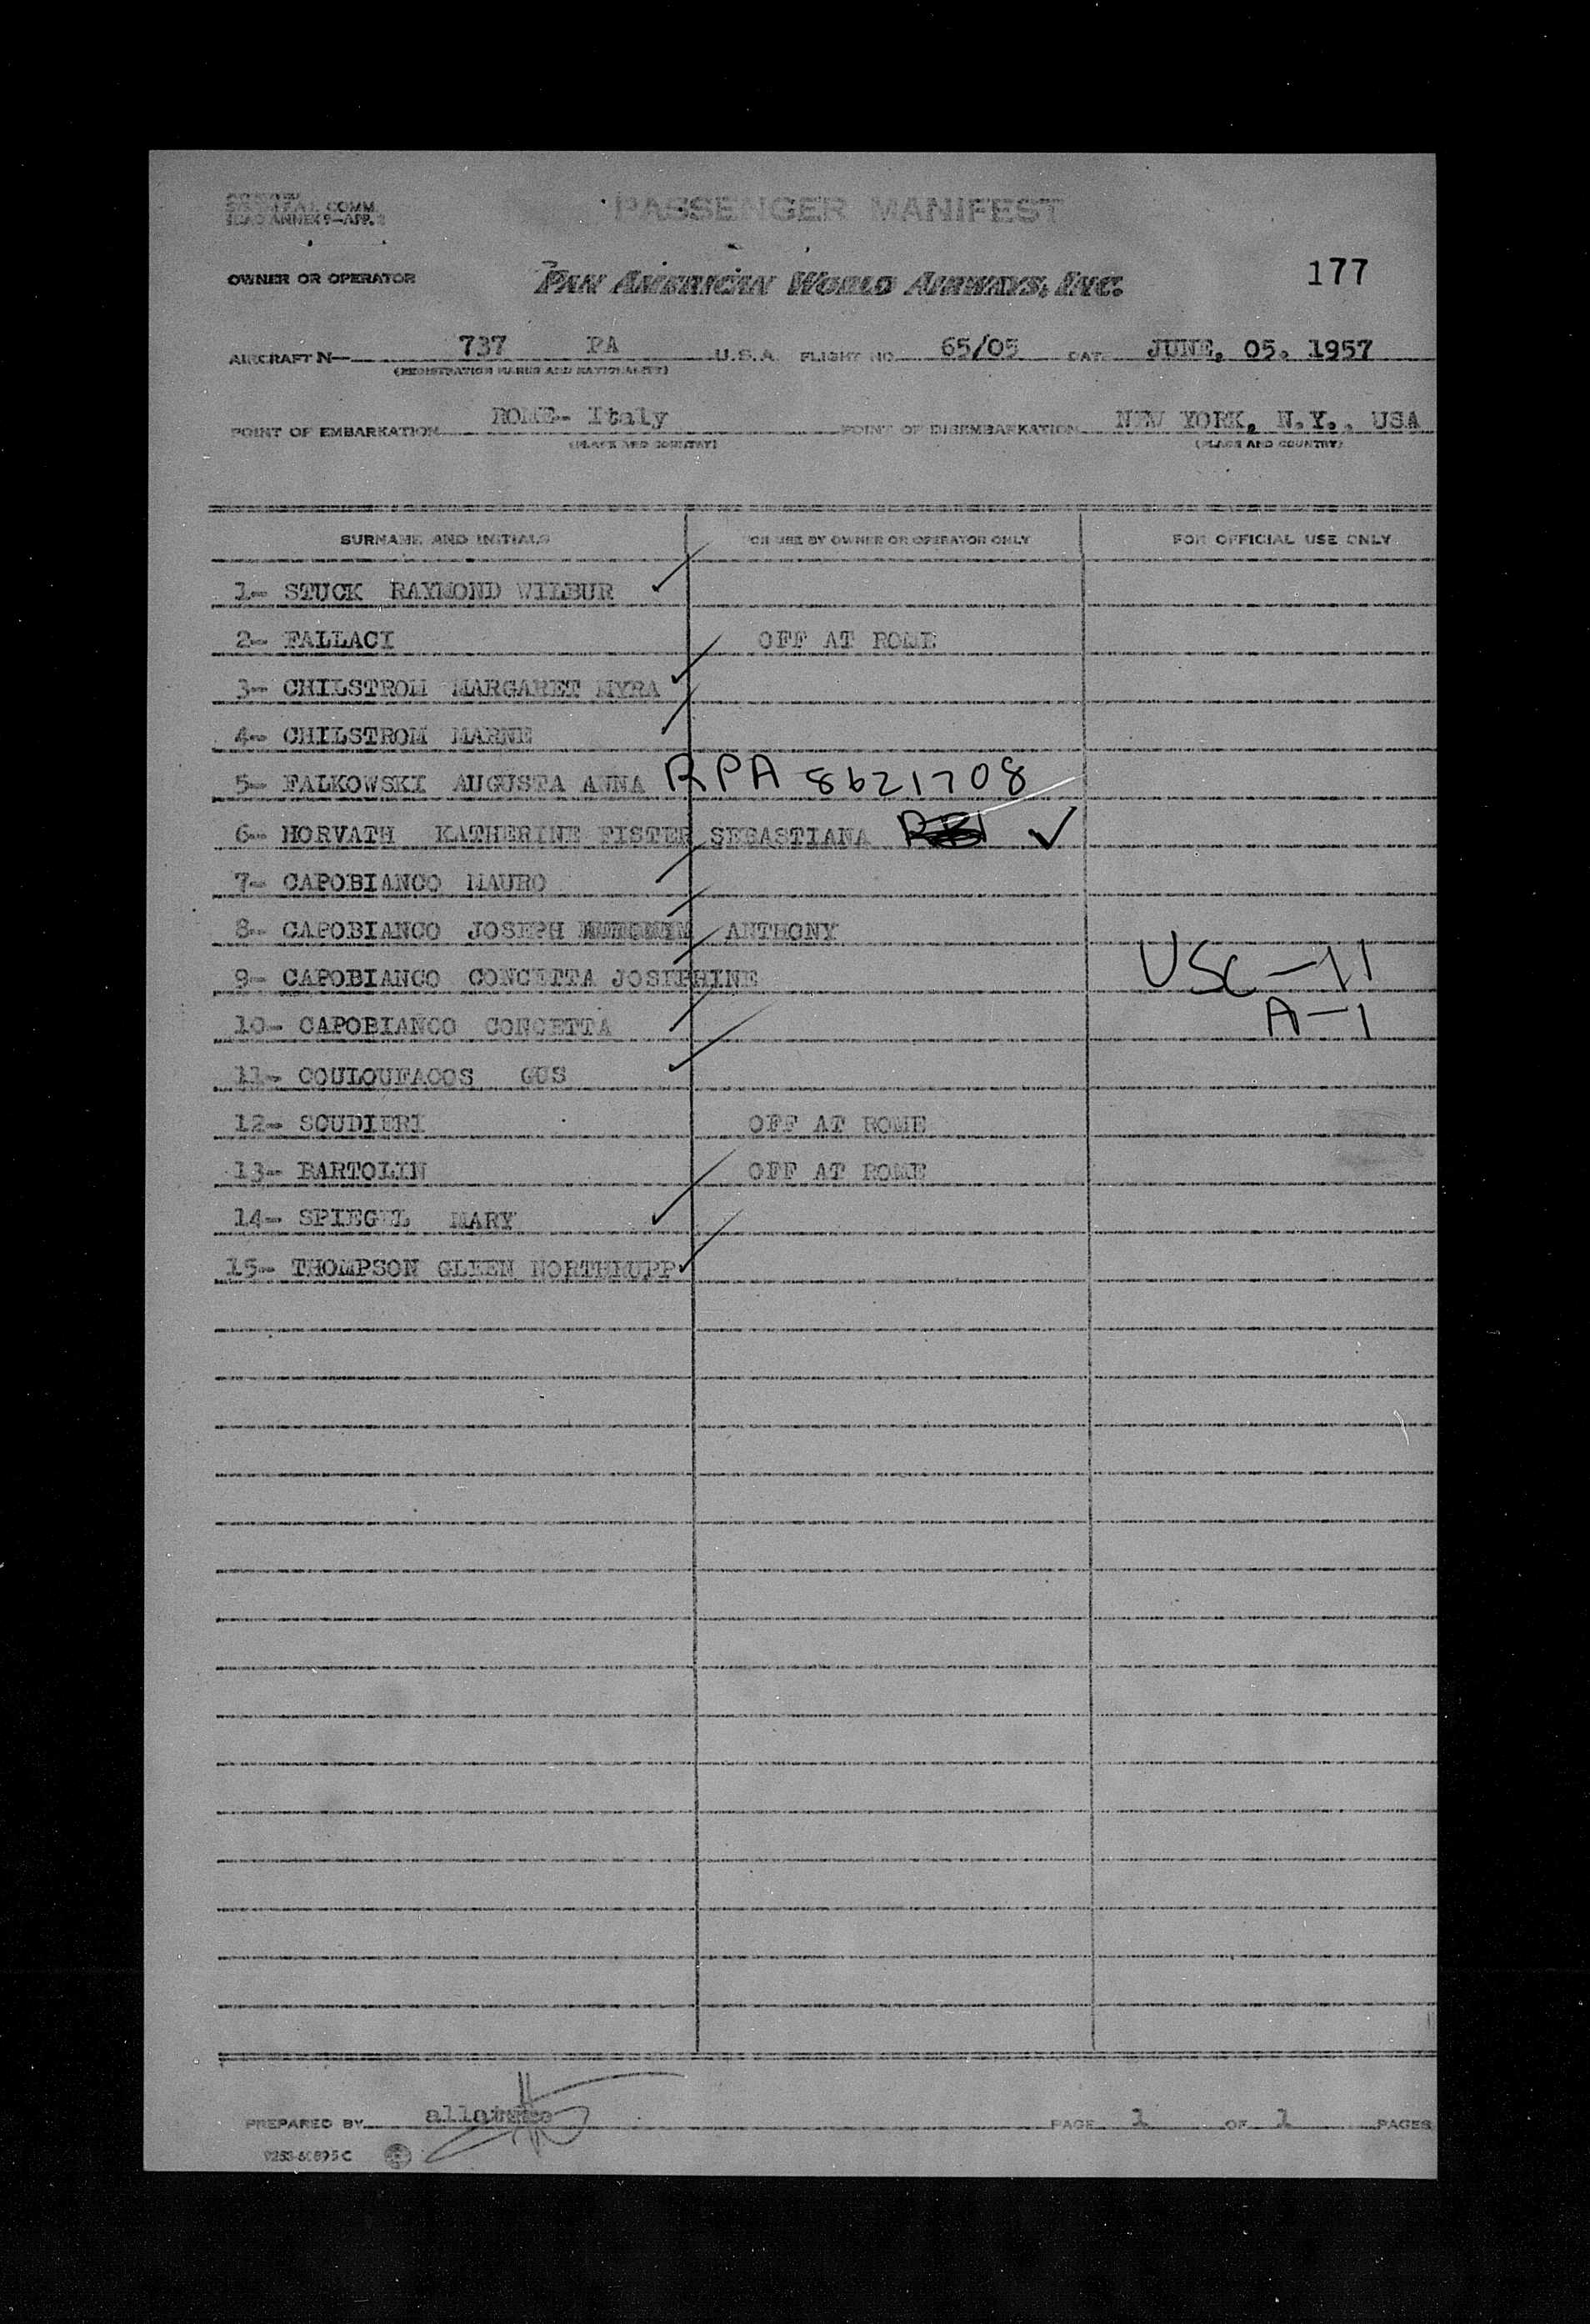 COMM.
ICAO ANNEX 9—APP. 2
PASSENGER MANIFEST
OWNER OR OPERATOR PAN AMERICAN WORLD AIRWAYS, INC. 177
AIRCRAFT N— 737 PA U.S.A. FLIGHT NO. 65/05 DATE JUNE, 05. 1957
(REGISTRATION MARKS AND NATIONALITY)
POINT OF EMBARKATION ROME- Italy POINT OF DISEMBARKATION NEW YORK, N.Y., USA
(PLACE AND COUNTRY) (PLACE AND COUNTRY)
SURNAME AND INITIALS FOR USE BY OWNER OR OPERATOR ONLY FOR OFFICIAL USE ONLY
1- STUCK RAYMOND WILBUR ✓
2- FALLACI OFF AT ROME
3- CHILSTROM MARGARET MYRA ✓
4- CHILSTROM MARNE
5- FALKOWSKI AUGUSTA ANNA RPA 8621708
6- HORVATH KATHERINE FISTER SEBASTIANA ✓
7- CAPOBIANCO MAURO
8- CAPOBIANCO JOSEPH ANTHONY
9- CAPOBIANCO CONCETTA JOSEPHINE USC-11
10- CAPOBIANCO CONCETTA A-1
11- COULOUFACOS GUS ✓
12- SCUDIERI OFF AT ROME
13- BARTOLIN OFF AT ROME
14- SPIEGEL MARY ✓
15- THOMPSON GLEEN NORTHRUPP ✓
PREPARED BY PAGE 1 OF 1 PAGES